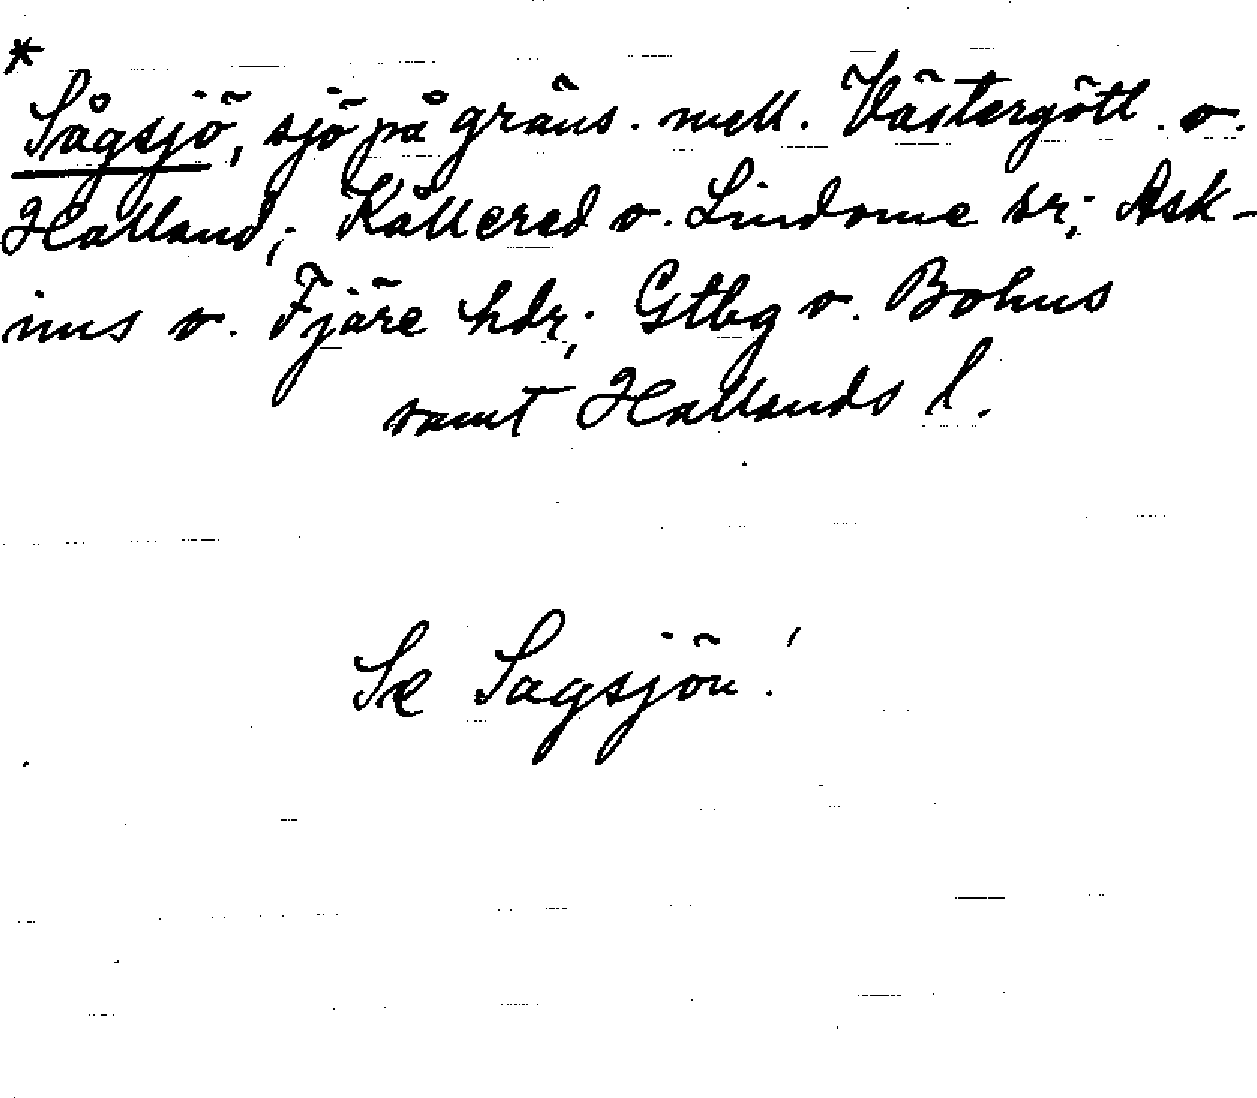 *
Sågsjö, sjö på gräns. mell. Västergötl. o.
Halland; Kållered o. Lindome sr; Ask-
ims o. Fjäre hdr; Gtbg o. Bohus
samt Hallands l.
Se Sagsjön!